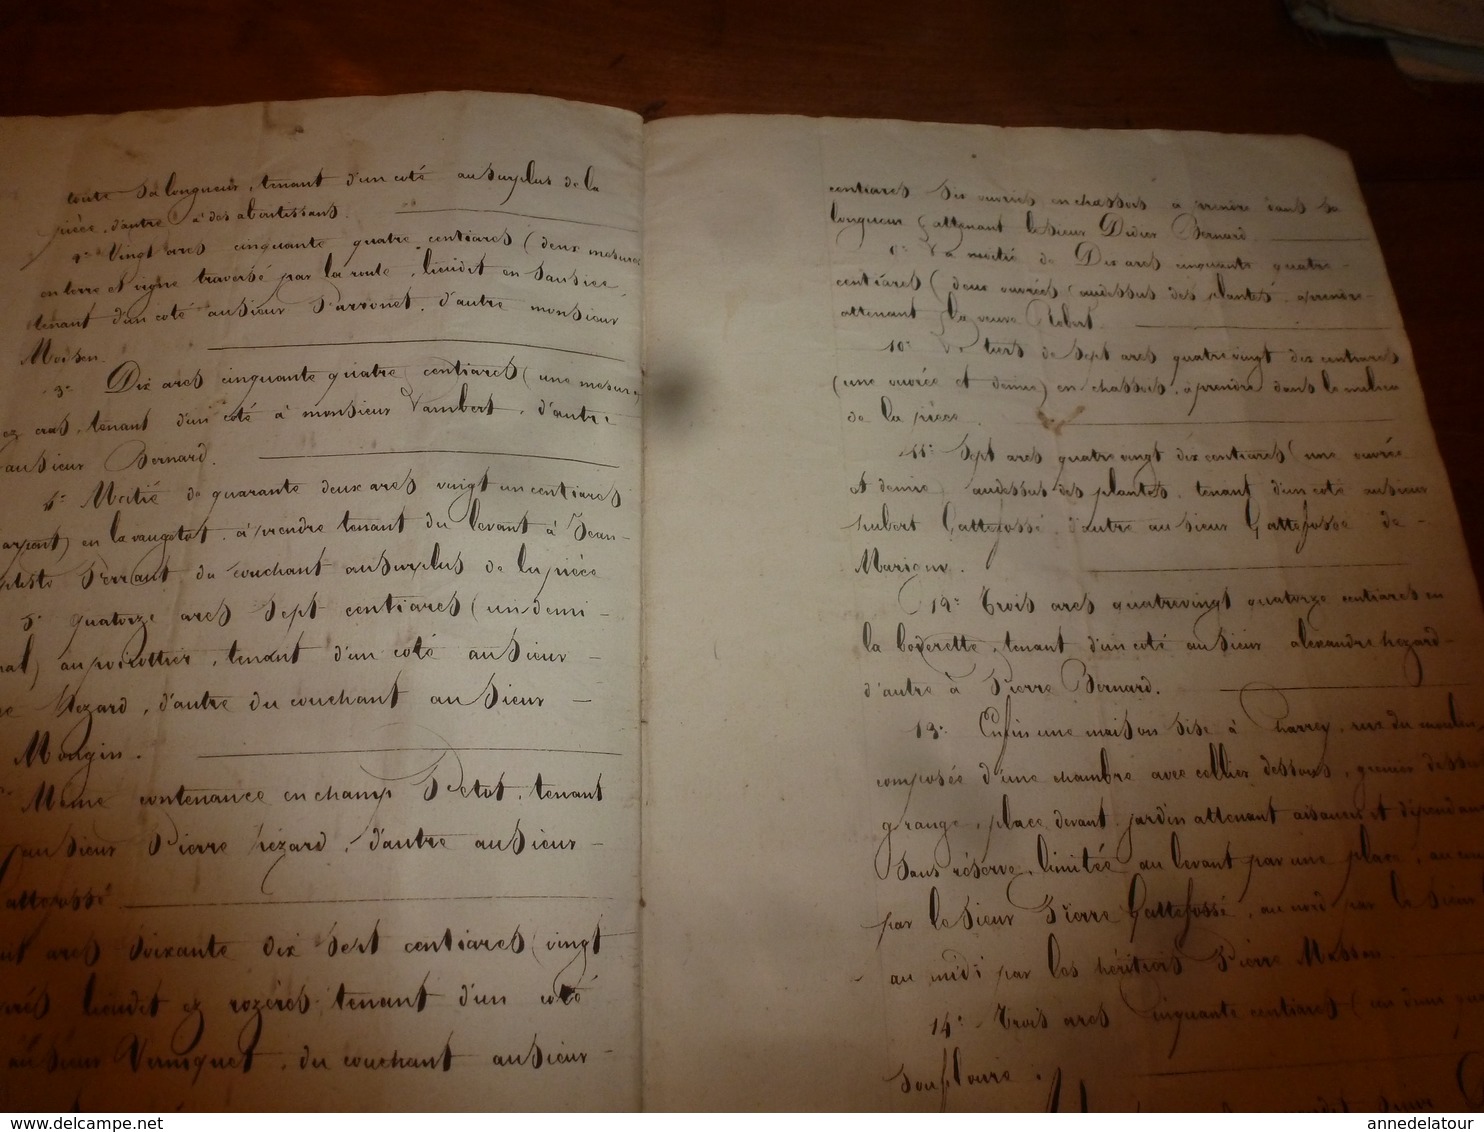 toute sa longueur, tenant d'un coté au surplus de la
pièce, d'autre à des aboutissans.
2° Vingt ares cinquante quatre centiares (deux mesures
en terre et vigne traversé par la route, lieudit en Sausice,
tenant d'un coté au sieur Parronet, d'autre monsieur
Moisson.
3° Dix ares cinquante quatre centiares (une mesure)
ez cras, tenant d'un coté à monsieur Vambert, d'autre
au sieur Bernard.
4° Moitié de quarante deux ares vingt un centiares
arpent) en la vaugotat, à prendre tenant du levant à Jean-
Perrant, du couchant au surplus de la pièce
5° quatorze ares sept centiares (un demi -
nal) au poirottier, tenant d'un coté au sieur -
Hezard, d'autre du couchant au sieur -
Mongin.
Même contenance en champ Petot, tenant
au sieur Pierre hézard, d'autre au sieur -
attefossé
ares soixante dix sept centiares (vingt
lieudit ez rozéres, tenant d'un coté
au sieur Verniquet, du couchant au sieur -
centiares six ouvrées en chassots à prendre dans sa
longueur (attenant le sieur Didier Bernard.
9° La moitié de Dix ares cinquante quatre -
centiares (deux ouvrées (audessus des plantes, à prendre -
attenant la veuve Robert.
10° Le tiers de sept ares quatre vingt dix centiares
(une ouvrée et demie) en chassots, à prendre dans le milieu
de la pièce.
11° Sept ares quatre vingt dix centiares (une ouvrée
et demie) audessus des plantes, tenant d'un coté au sieur
hubert Gattefossé, d'autre au sieur Gattefossé de -
Marigny.
12° Trois ares quatrevingt quatorze centiares en
la boverette, tenant d'un coté au sieur alexandre hezard -
d'autre à Pierre Bernard.
13° Enfin une maison sise à Charrey, rue du moulin,
composée d'une chambre avec cellier dessous, grenier dessus
grange, place devant, jardin attenant aisances et dépendances
sans réserve, limitée au levant par une place, au
par le sieur Pierre Gattefossé, au nord par le sieur
au midi par les héritiers Pierre Masson.
14° Trois ares cinquante centiares (un demi
Soufloire.
annedelatour